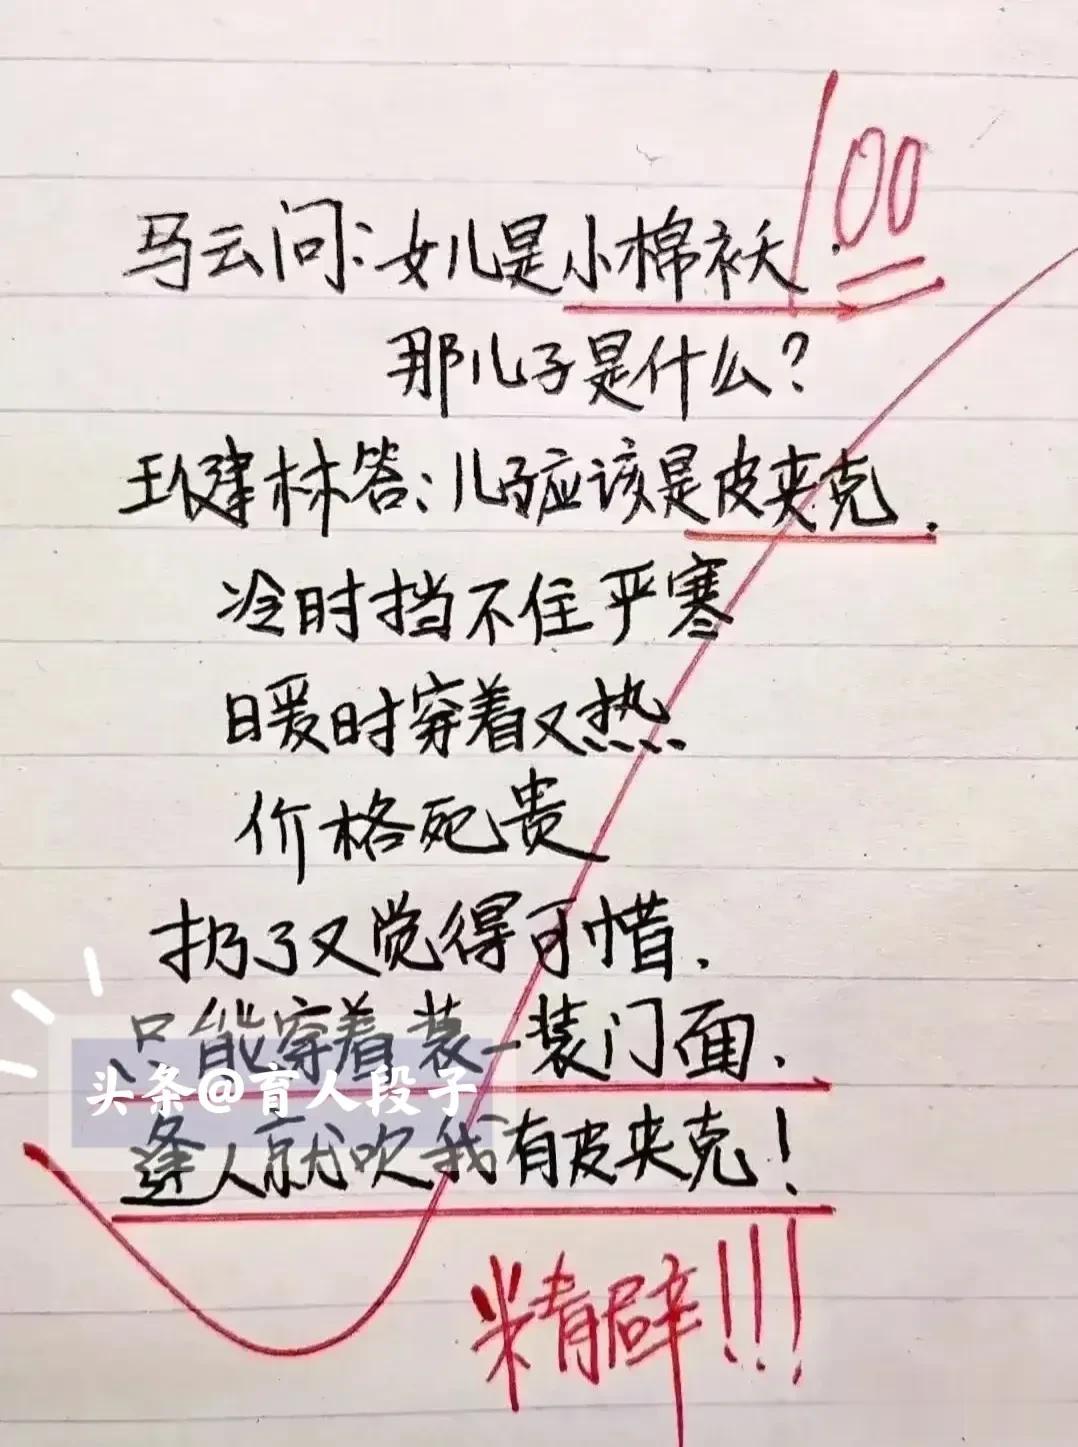 100
马云问：女儿是小棉袄
那儿子是什么？
王健林答：儿子应该是皮夹克.
冷时挡不住严寒
暖时穿着又热
价格死贵
扔了又觉得可惜.
只能穿着装一装门面.
头条@育人段子
逢人就吹我有皮夹克！
精辟!!!